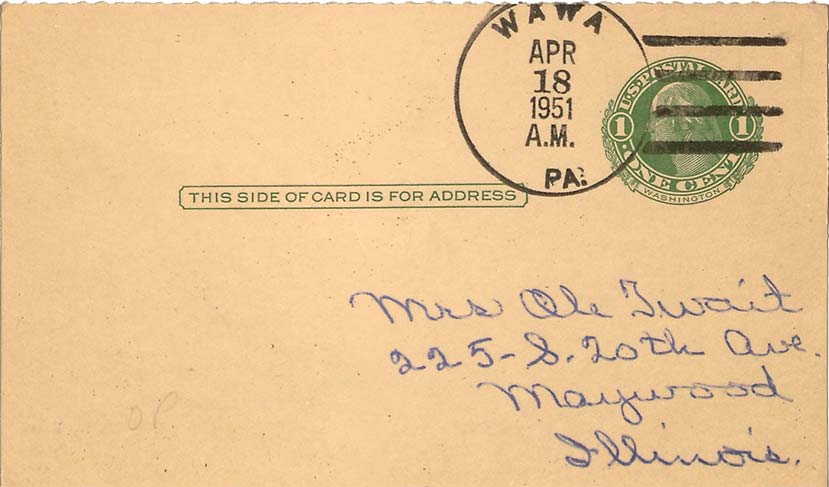 WAWA
APR
18
1951
A.M.
PA.
U.S. POSTAL CARD
1 1
ONE CENT
WASHINGTON
THIS SIDE OF CARD IS FOR ADDRESS
Mrs Ole Twait
225-S. 20th Ave.
Maywood
Illinois.
OP